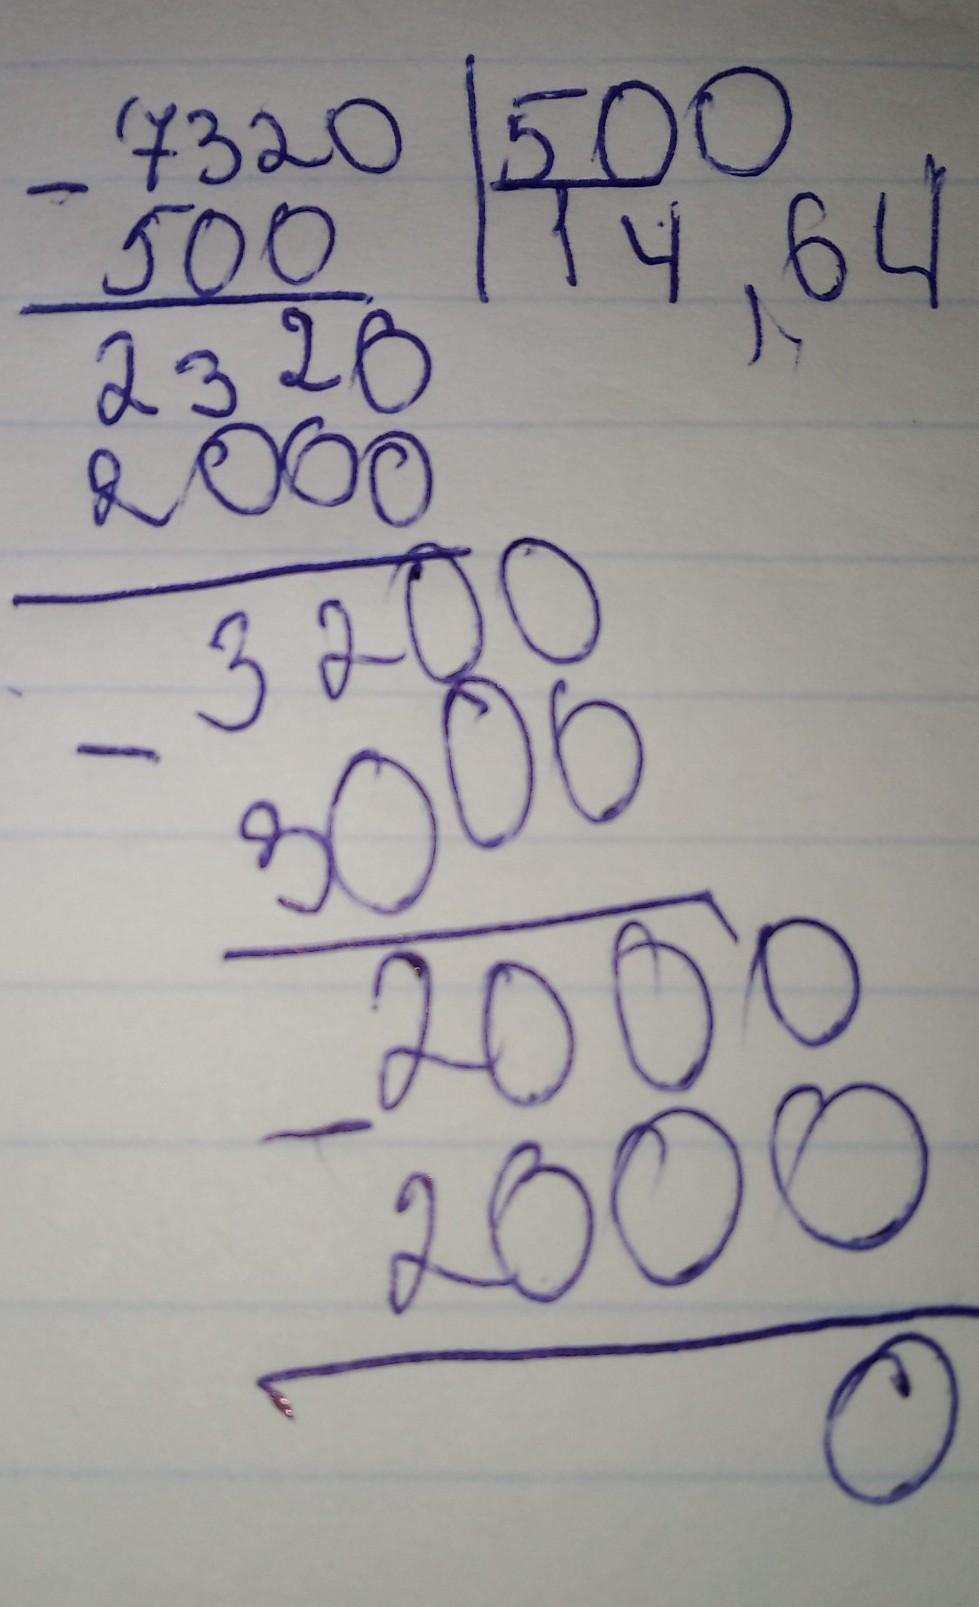 - 7320 | 500
500 14,64
2320
2000
3200
- 3000
2000
- 2000
0